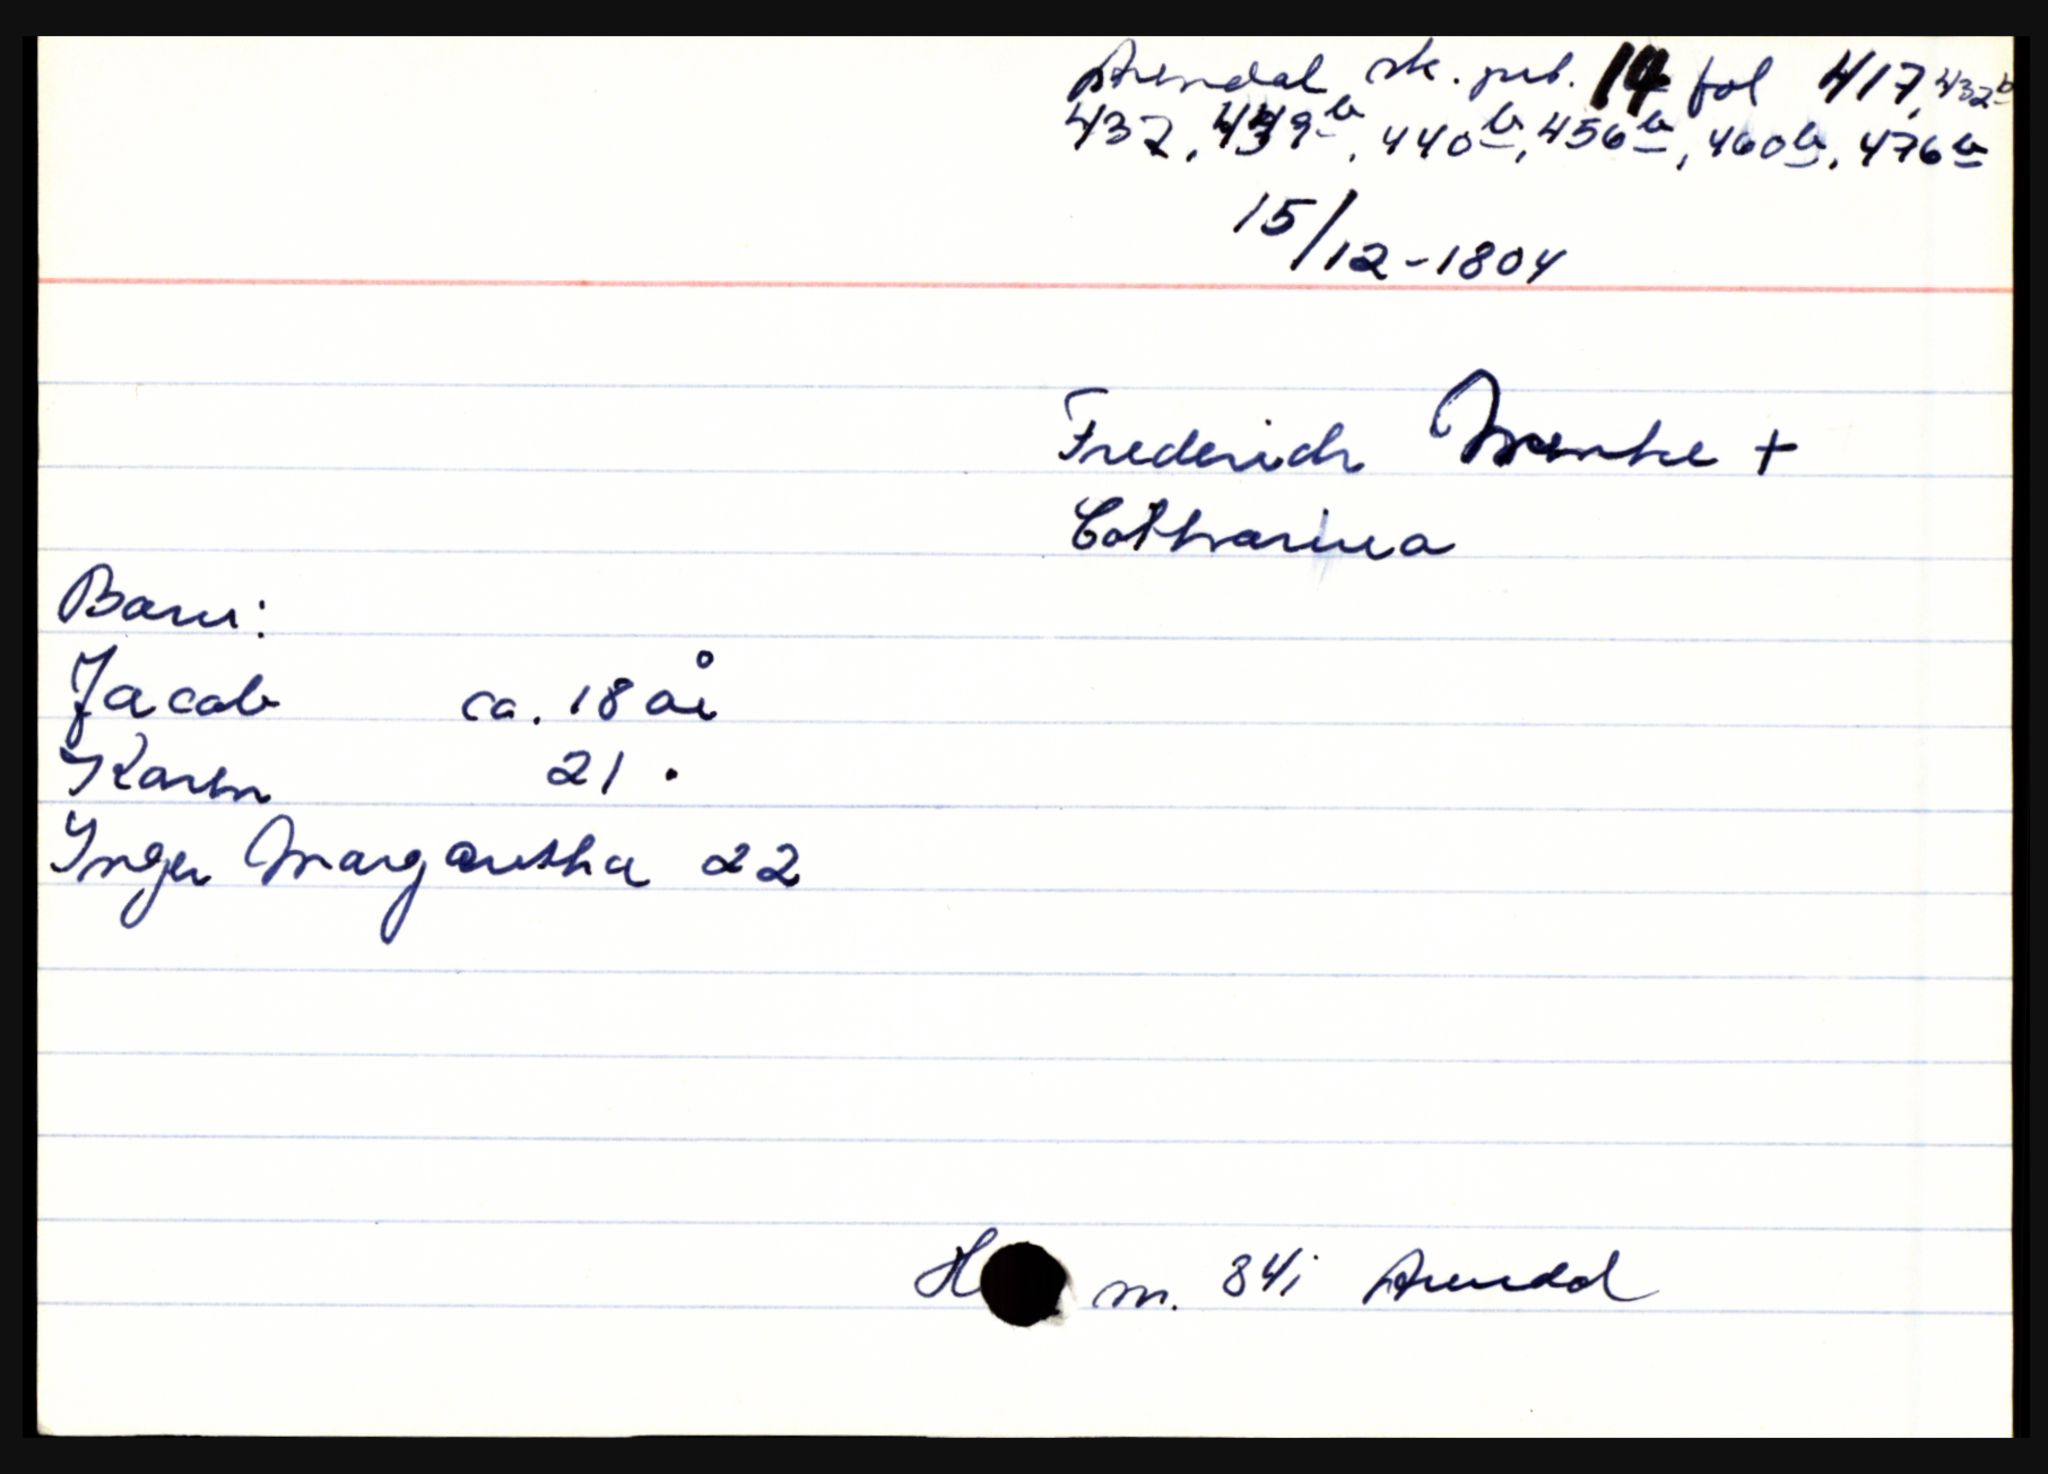 Arendal sk. prt. 14 fol 417, 432b
437, 439b, 440b, 456b, 460b, 476b
15/12-1804
Frederich Menke +
Catharina
Barn:
Jacob ca. 18 år
Karen 21 "
Inger Margaretha 22
H m. 84 i Arendal